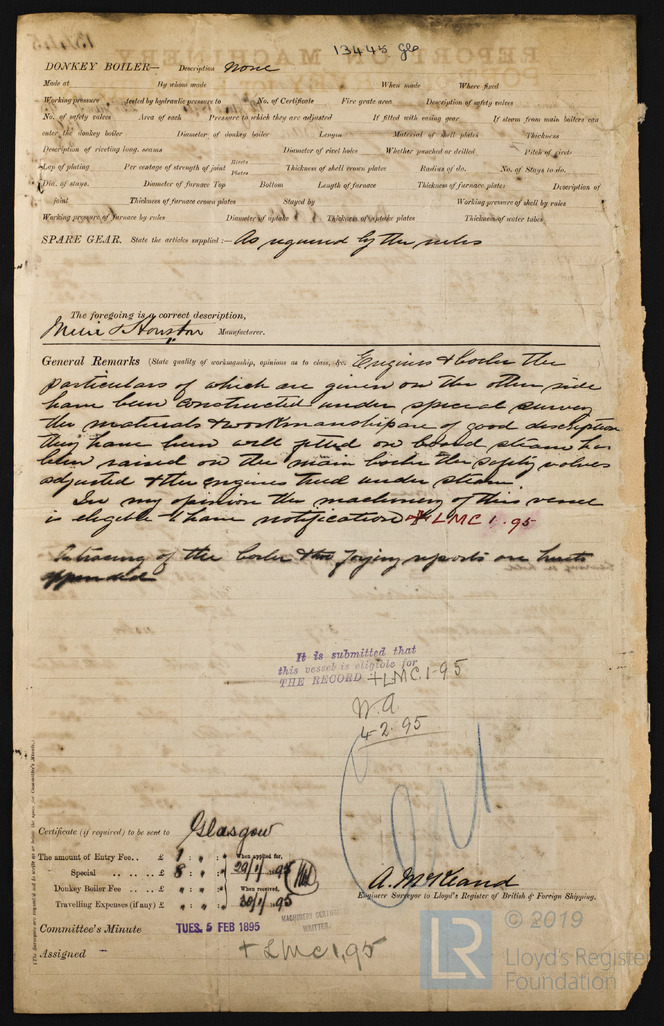 13445 gls
DONKEY BOILER— Description None
Made at By whom made When made Where fixed
Working pressure tested by hydraulic pressure to No. of Certificate Fire grate area Description of safety valves
No. of safety valves Area of each Pressure to which they are adjusted If fitted with easing gear If steam from main boilers can
enter the donkey boiler Diameter of donkey boiler Length Material of shell plates Thickness
Description of riveting long. seams Diameter of rivet holes Whether punched or drilled Pitch of rivets
Lap of plating Per centage of strength of joint Rivets Plates Thickness of shell crown plates Radius of do. No. of Stays to do.
Dia. of stays. Diameter of furnace Top Bottom Length of furnace Thickness of furnace plates Description of
joint Thickness of furnace crown plates Stayed by Working pressure of shell by rules
Working pressure of furnace by rules Diameter of uptake Thickness of uptake plates Thickness of water tubes
SPARE GEAR. State the articles supplied:— As required by the rules
The foregoing is a correct description,
Muir & Houston Manufacturer.
General Remarks (State quality of workmanship, opinions as to class, &c. Engines & boiler the
particulars of which are given on the other side
have been constructed under special survey
the materials & workmanship are of good description
they have been well fitted on board steam has
been raised on the main boiler the safety valves
adjusted & the engines tried under steam.
In my opinion the machinery of this vessel
is eligible to have notification + LMC 1.95
A tracing of the boiler & two forging reports are
appended
It is submitted that
this vessel is eligible for
THE RECORD + LMC.1-95
4.2.95
Certificate (if required) to be sent to Glasgow
The amount of Entry Fee.. £ 1 : " : " When applied for,
Special .. .. .. £ 8 : " : " 29/1/1895
Donkey Boiler Fee .. .. £ " : " : " When received,
Travelling Expenses (if any) £ " : " : " 30/1/95
A. McKeand
Engineer Surveyor to Lloyd's Register of British & Foreign Shipping.
Committee's Minute TUES. 5 FEB 1895
MACHINERY CERTIFICATE
WRITTEN.
Assigned + LMC 1,95
© 2019
LR
Lloyd's Register
Foundation